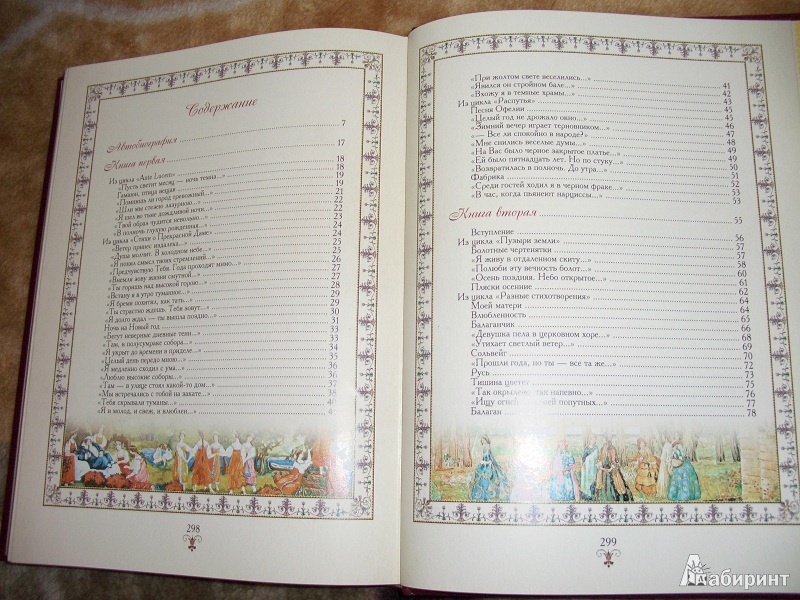 Содержание
Автобиография 7
Книга первая 17
Из цикла «Ante Lucem» 18
«Пусть светит месяц — ночь темна...» 18
Гамаюн, птица вещая 19
«Помнишь ли город тревожный...» 19
«Шли мы стезею лазурною...» 21
«Я шел во тьме дождливой ночи...» 22
«Твой образ чудится невольно...» 22
«В полночь глухую рожденная...» 23
Из цикла «Стихи о Прекрасной Даме» 24
«Ветер принес издалека...» 24
«Душа молчит. В холодном небе...» 25
«Я понял смысл твоих стремлений...» 25
«Предчувствую Тебя. Года проходят мимо...» 26
«Внемля зову жизни смутной...» 27
«Ты горишь над высокой горою...» 27
«Встану я в утро туманное...» 28
«Я бремя похитил, как тать...» 28
«Ты страстно ждешь. Тебя зовут...» 29
«Я долго ждал — ты вышла поздно...» 29
Ночь на Новый год 30
«Бегут неверные дневные тени...» 31
«Там, в полусумраке собора...» 33
«Я укрыт до времени в приделе...» 33
«Целый день передо мною...» 34
«Я медленно сходил с ума...» 35
«Люблю высокие соборы...» 36
«Там — в улице стоял какой-то дом...» 36
«Мы встречались с тобой на закате...» 37
«Тебя скрывали туманы...» 38
«Я и молод, и свеж, и влюблен...» 4
298
«При жолтом свете веселились...» 41
«Явился он стройном бале...» 41
«Вхожу я в темные храмы...» 42
Из цикла «Распутья» 43
Песня Офелии 45
«Целый год не дрожало окно...» 45
«Зимний вечер играет терновником...» 46
«— Все ли спокойно в народе?» 47
«Мне снились веселые думы...» 47
«На Вас было черное закрытое платье...» 48
«Ей было пятнадцать лет. Но по стуку...» 49
«Возвратилась в полночь. До утра...» 50
Фабрика 51
«Среди гостей ходил я в черном фраке...» 52
«В час, когда пьянеют нарциссы...» 53
53
Книга вторая 55
Вступление 56
Из цикла «Пузыри земли» 57
Болотные чертенятки 57
«Я живу в отдаленном скиту...» 58
«Полюби эту вечность болот...» 59
«Осень поздняя. Небо открытое...» 60
Пляски осенние 61
Из цикла «Разные стихотворения» 62
Моей матери 64
Влюбленность 64
Балаганчик 65
«Девушка пела в церковном хоре...» 66
«Утихает светлый ветер...» 68
Сольвейг 69
«Прошли года, но ты — все та же...» 70
Русь 72
Тишина цветет 73
«Так окрыленно, так напевно...» 75
«Ищу огней попутных...» 76
Балаган 77
78
299
Лабиринт